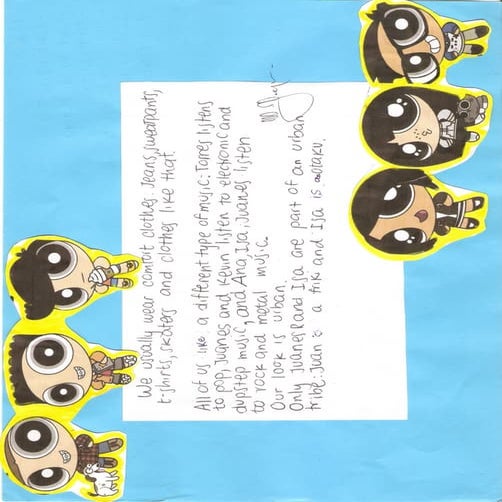 We usually wear comfort clothes Jeans, sweatpants,
t-shirts, skaters and clothes like that.
All of us like a different type of music: Torres listens
to pop, Juanes and Kevin listen to electronic and
dupstep music, and Ana, Isa, Juanes listen
to rock and metal music.
Our look is urban.
Only Juanes R and Isa are part of an urban
tribe. Juan is a friki and Isa is otaku.